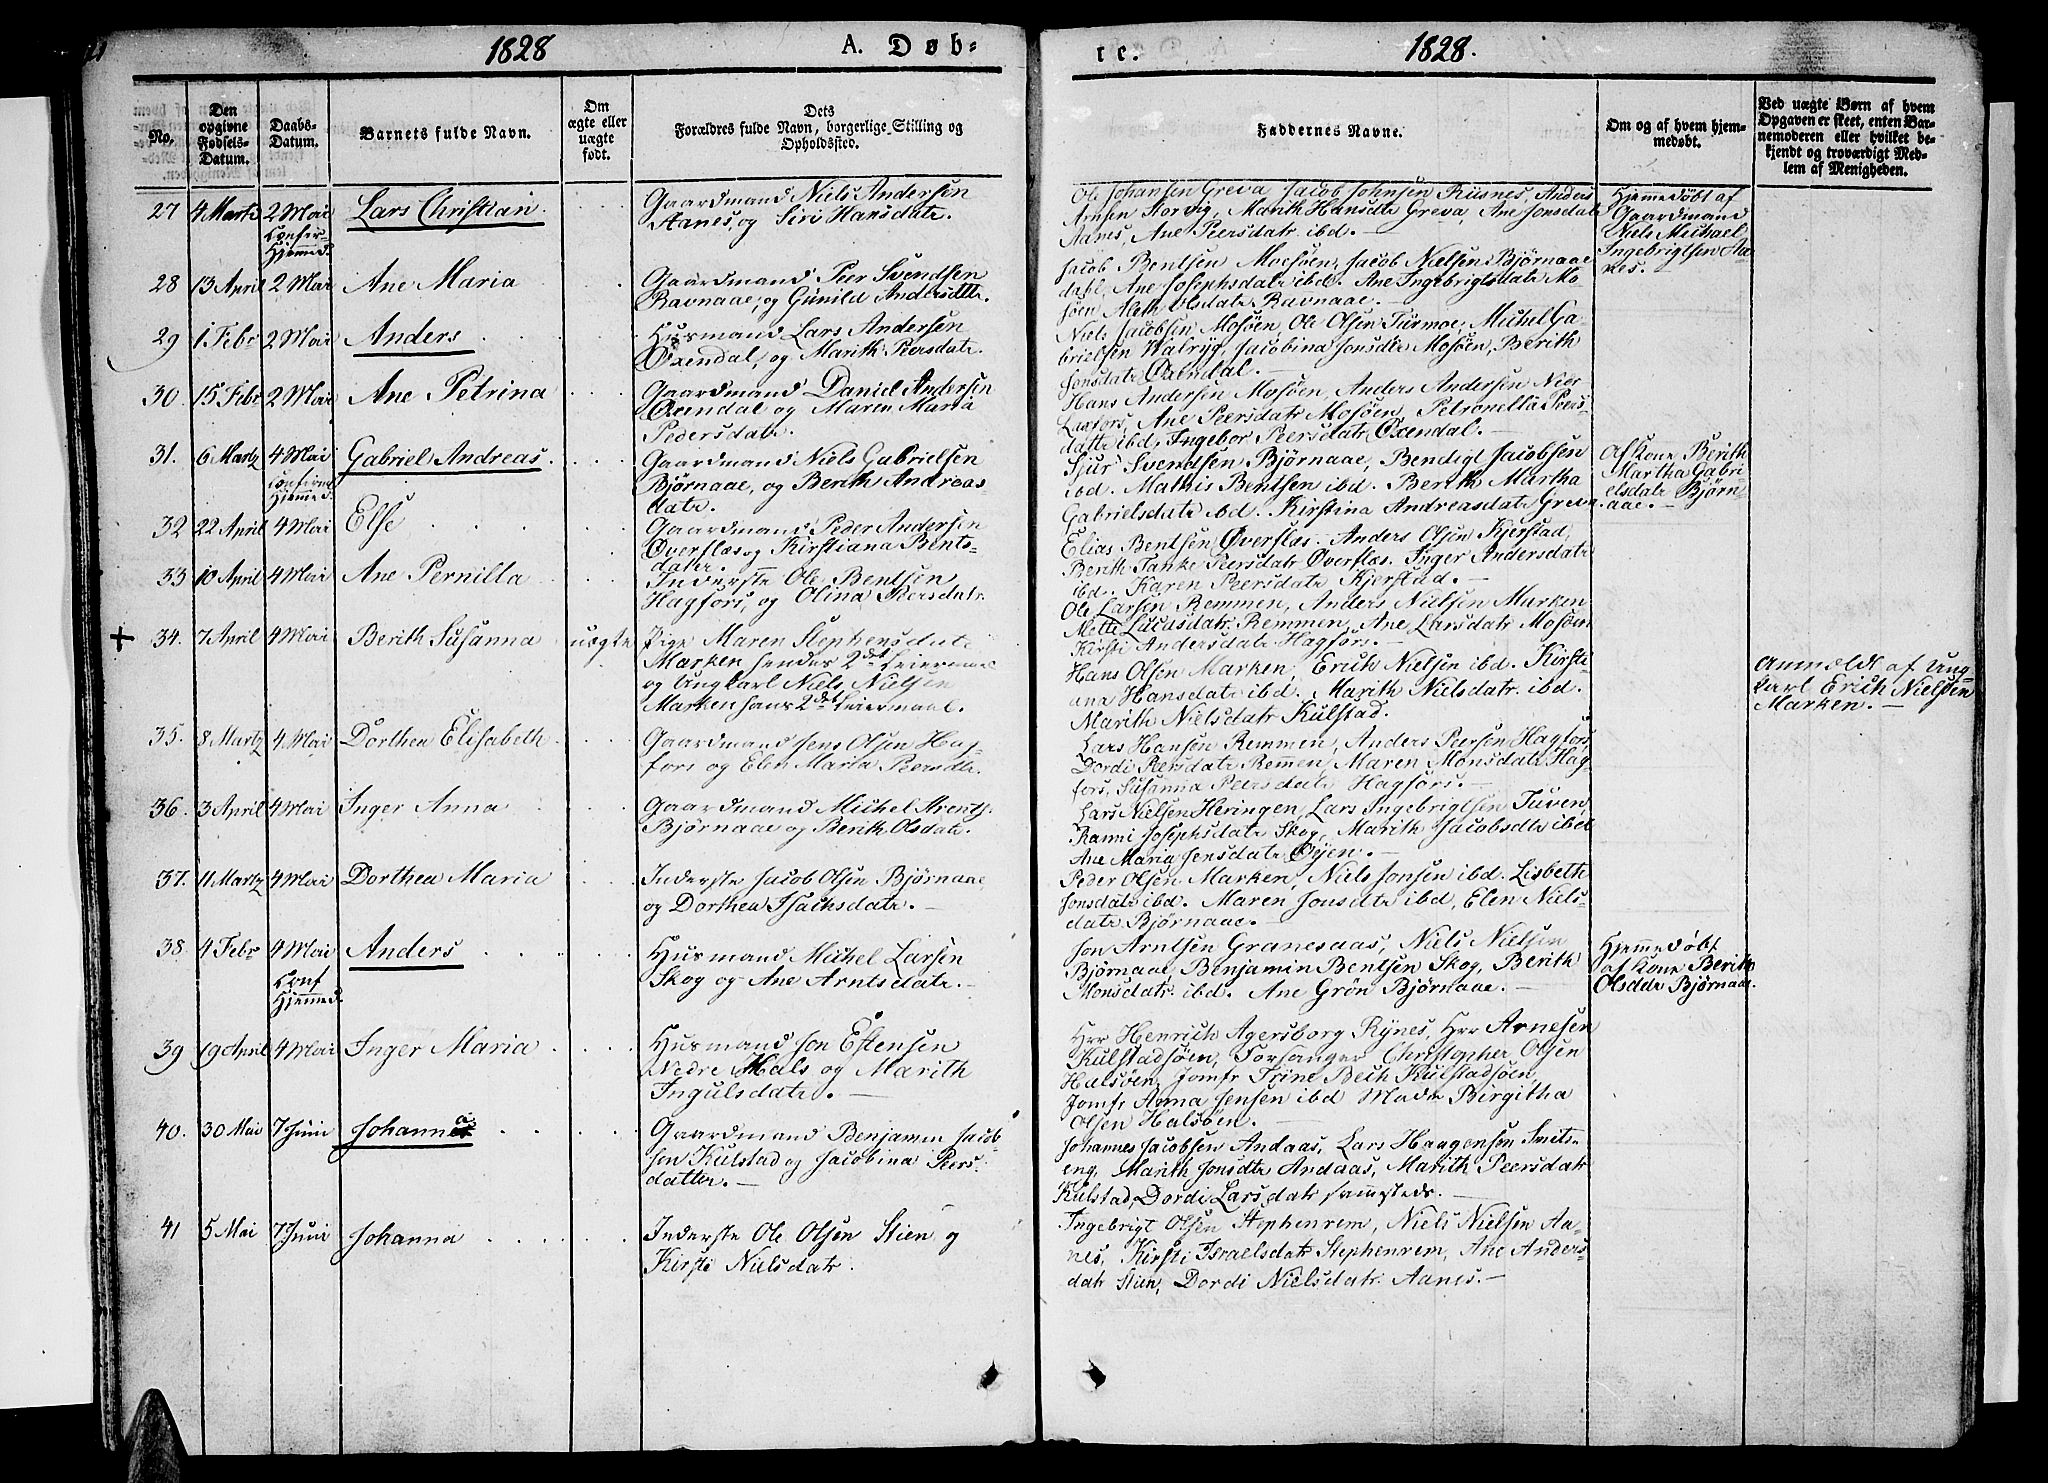 1828 A. Døb-
No.
Den opgivne Fødsels-Datum.
Daabs-Datum.
Barnets fulde Navn.
Om ægte eller uægte født.
Dets Forældres fulde Navn, borgerlige Stilling og Opholdssted.
27 4 Marts 2 Mai Lars Christian Gaardmand Niels Andersen
Confir. Hjemmed. Aanes, og Siri Hansdatr.
28 13 April 2 Mai Ane Maria Gaardmand Peer Svendsen
Ravnaae, og Gunild Andersdtr.
29 1 Febr 2 Mai Anders Husmand Lars Andersen
Øxendal, og Marith Peersdatr.
30. 15 Febr 2 Mai Ane Petrina Gaardmand Daniel Andersen
Øxendal og Maren Maria
Pedersdatr.
31. 6 Martz 4 Mai Gabriel Andreas Gaardmand Niels Gabrielsen
confirm Hjemmed. Bjørnaae, og Berith Andreas-
datr.
32 22 April 4 Mai Else Gaardmand Peder Andersen
Øverflæs og Kirstiana Bents-
datr.
33 10 April 4 Mai Ane Pernilla Inderste Ole Bentsen
Hagfors, og Olina Peersdatr
34. 7 April 4 Mai Berith Susanna uægte Pige Maren Stephensdatr
Marken hendes 2det Leiermaal
og Ungkarl Niels Nielsen
Marken hans 2det Leiermaal.
35. 8 Martz 4 Mai Dorthea Elisabeth Gaardmand Jens Olsen Hag-
fors og Elen Maria Peersdtr.
36. 3 April 4 Mai Inger Anna Gaardmand Michel Arents.
Bjørnaae og Berith Olsdatr.
37. 11 Martz 4 Mai Dorthea Maria Inderste Jacob Olsen Bjørnaae,
og Dorthea Isachsdatr.
38. 4 Febr 4 Mai Anders Husmand Michel Larsen
Conf Hjemmed. Skog og Ane Arntsdatr.
39 19 April 4 Mai Inger Maria Husmand Jon Estensen
Nedre Hals og Marith
Ingulsdatr.
40. 30 Mai 7 Juni Gaardmand Benjamin Jacob-
sen Kulstad og Jacobina Peers-
datter.
41 5 Mai 7 Juni Johanna Inderste Ole Olsen Stien og
Kirsti Nielsdatr.
te. 1828.
Faddernes Navne.
Om og af hvem hjemmedøbt.
Ved uægte Børn af hvem Opgaven er skeet, enten Barnemoderen eller hvilket bekjendt og troværdigt Medlem af Menigheden.
Ole Johansen Greva Jacob Johnsen Riisnes, Anders
Arnsen Storvig, Marith Hansdtr Greva, Ane Jonsdatr
Aanes, Ane Peersdatr ibd.
Hjemmedøbt af
Gaardmand
Niels Michael
Ingebrigtsen Aa-
nes.
Jacob Bentsen Mosøen, Jacob Nielsen Bjørnaae
dahl, Ane Josephsdatr ibd. Ane Ingebrigtsdatr Mo-
søen Aleth Olsdatr Ravnaae.
Niels Jacobsen Mosøen, Ole Olsen Turmoe, Michel Ga-
brielsen Valryg, Jacobina Jonsdtr Mosøen, Berith
Jonsdatr Øxendal.
Hans Andersen Mosøen, Anders Andersen Nedr
Laxfors, Ane Peersdatr Mosøen, Petronella Peers-
datr ibd, Ingebor Peersdatr Øxendal.
Sjur Svendsen Bjørnaae, Bendigt Jacobsen
ibd. Mathis Bentsen ibd. Berith Martha
Gabrielsdatr ibd. Kirstina Andreasdatr Greva.
af Kone Berith
Martha Gabri
elsdatr Bjørn
aae.
Elias Bentsen Øverflæs. Anders Olsen Kjerstad,
Berith Tanke Peersdatr Øverflæs. Inger Andersdatr
ibd. Karen Peersdatr Kjerstad.
Ole Larsen Remmen, Anders Nielsen Marken
Mette Lucasdatr Remmen, Ane Larsdatr Mosøen
Kirsti Andersdatr Hagfors.
Hans Olsen Marken, Erich Nielsen ibd. Kirsti-
ana Hansdatr ibd. Marith Nielsdatr ibd.
Marith Nielsdatr Kulstad.
Anmeldt af Ung-
karl Erich Nielsen
Marken.
Lars Hansen Remmen, Anders Peersen Hagfors,
Dordi Peersdatr Remmen, Maren Monsdatr Hag-
fors, Susanna Peersdatr Hagfors.
Lars Nielsen Heringen, Lars Ingebrigtsen Tuven
Ranni Josephsdatr Skog, Marith Jacobsdtr ibd
Ane Maria Jensdatr Øyen.
Peder Olsen Marken, Niels Jonsen ibd. Lisbeth
Jonsdatr ibd. Maren Jonsdtr ibd, Elen Niels-
datr Bjørnaae.
Jon Arntsen Granesaas, Niels Nielsen
Bjørnaae, Benjamin Bentsen Skog, Berith
Monsdatr ibd. Ane Grøn Bjørnaae.
Hjemmedøbt
af Kone Berith
Olsdtr Bjørnaae.
Hrr Henrich Agersborg Rynes, Hrr Arnesen
Kulstadsøen, Forsanger Christopher Olsen
Halsøen, Jomfr Trine Bech Kulstadsøen,
Jomfr Anna Jensen ibd Mad. Birgitha
Olsen Halsøen.
Johannes Jacobsen Andaas, Lars Haagensen Smits-
eng, Marith Jonsdtr Andaas, Marith Peersdatr
Kulstad, Dordi Larsdatr sammesteds.
Ingebrigt Olsen Stephenrem, Niels Nielsen Aa-
nes, Kirsti Israelsdatr Stephenrem, Ane Anders-
datr Stien, Dordi Nielsdatr Aanes.